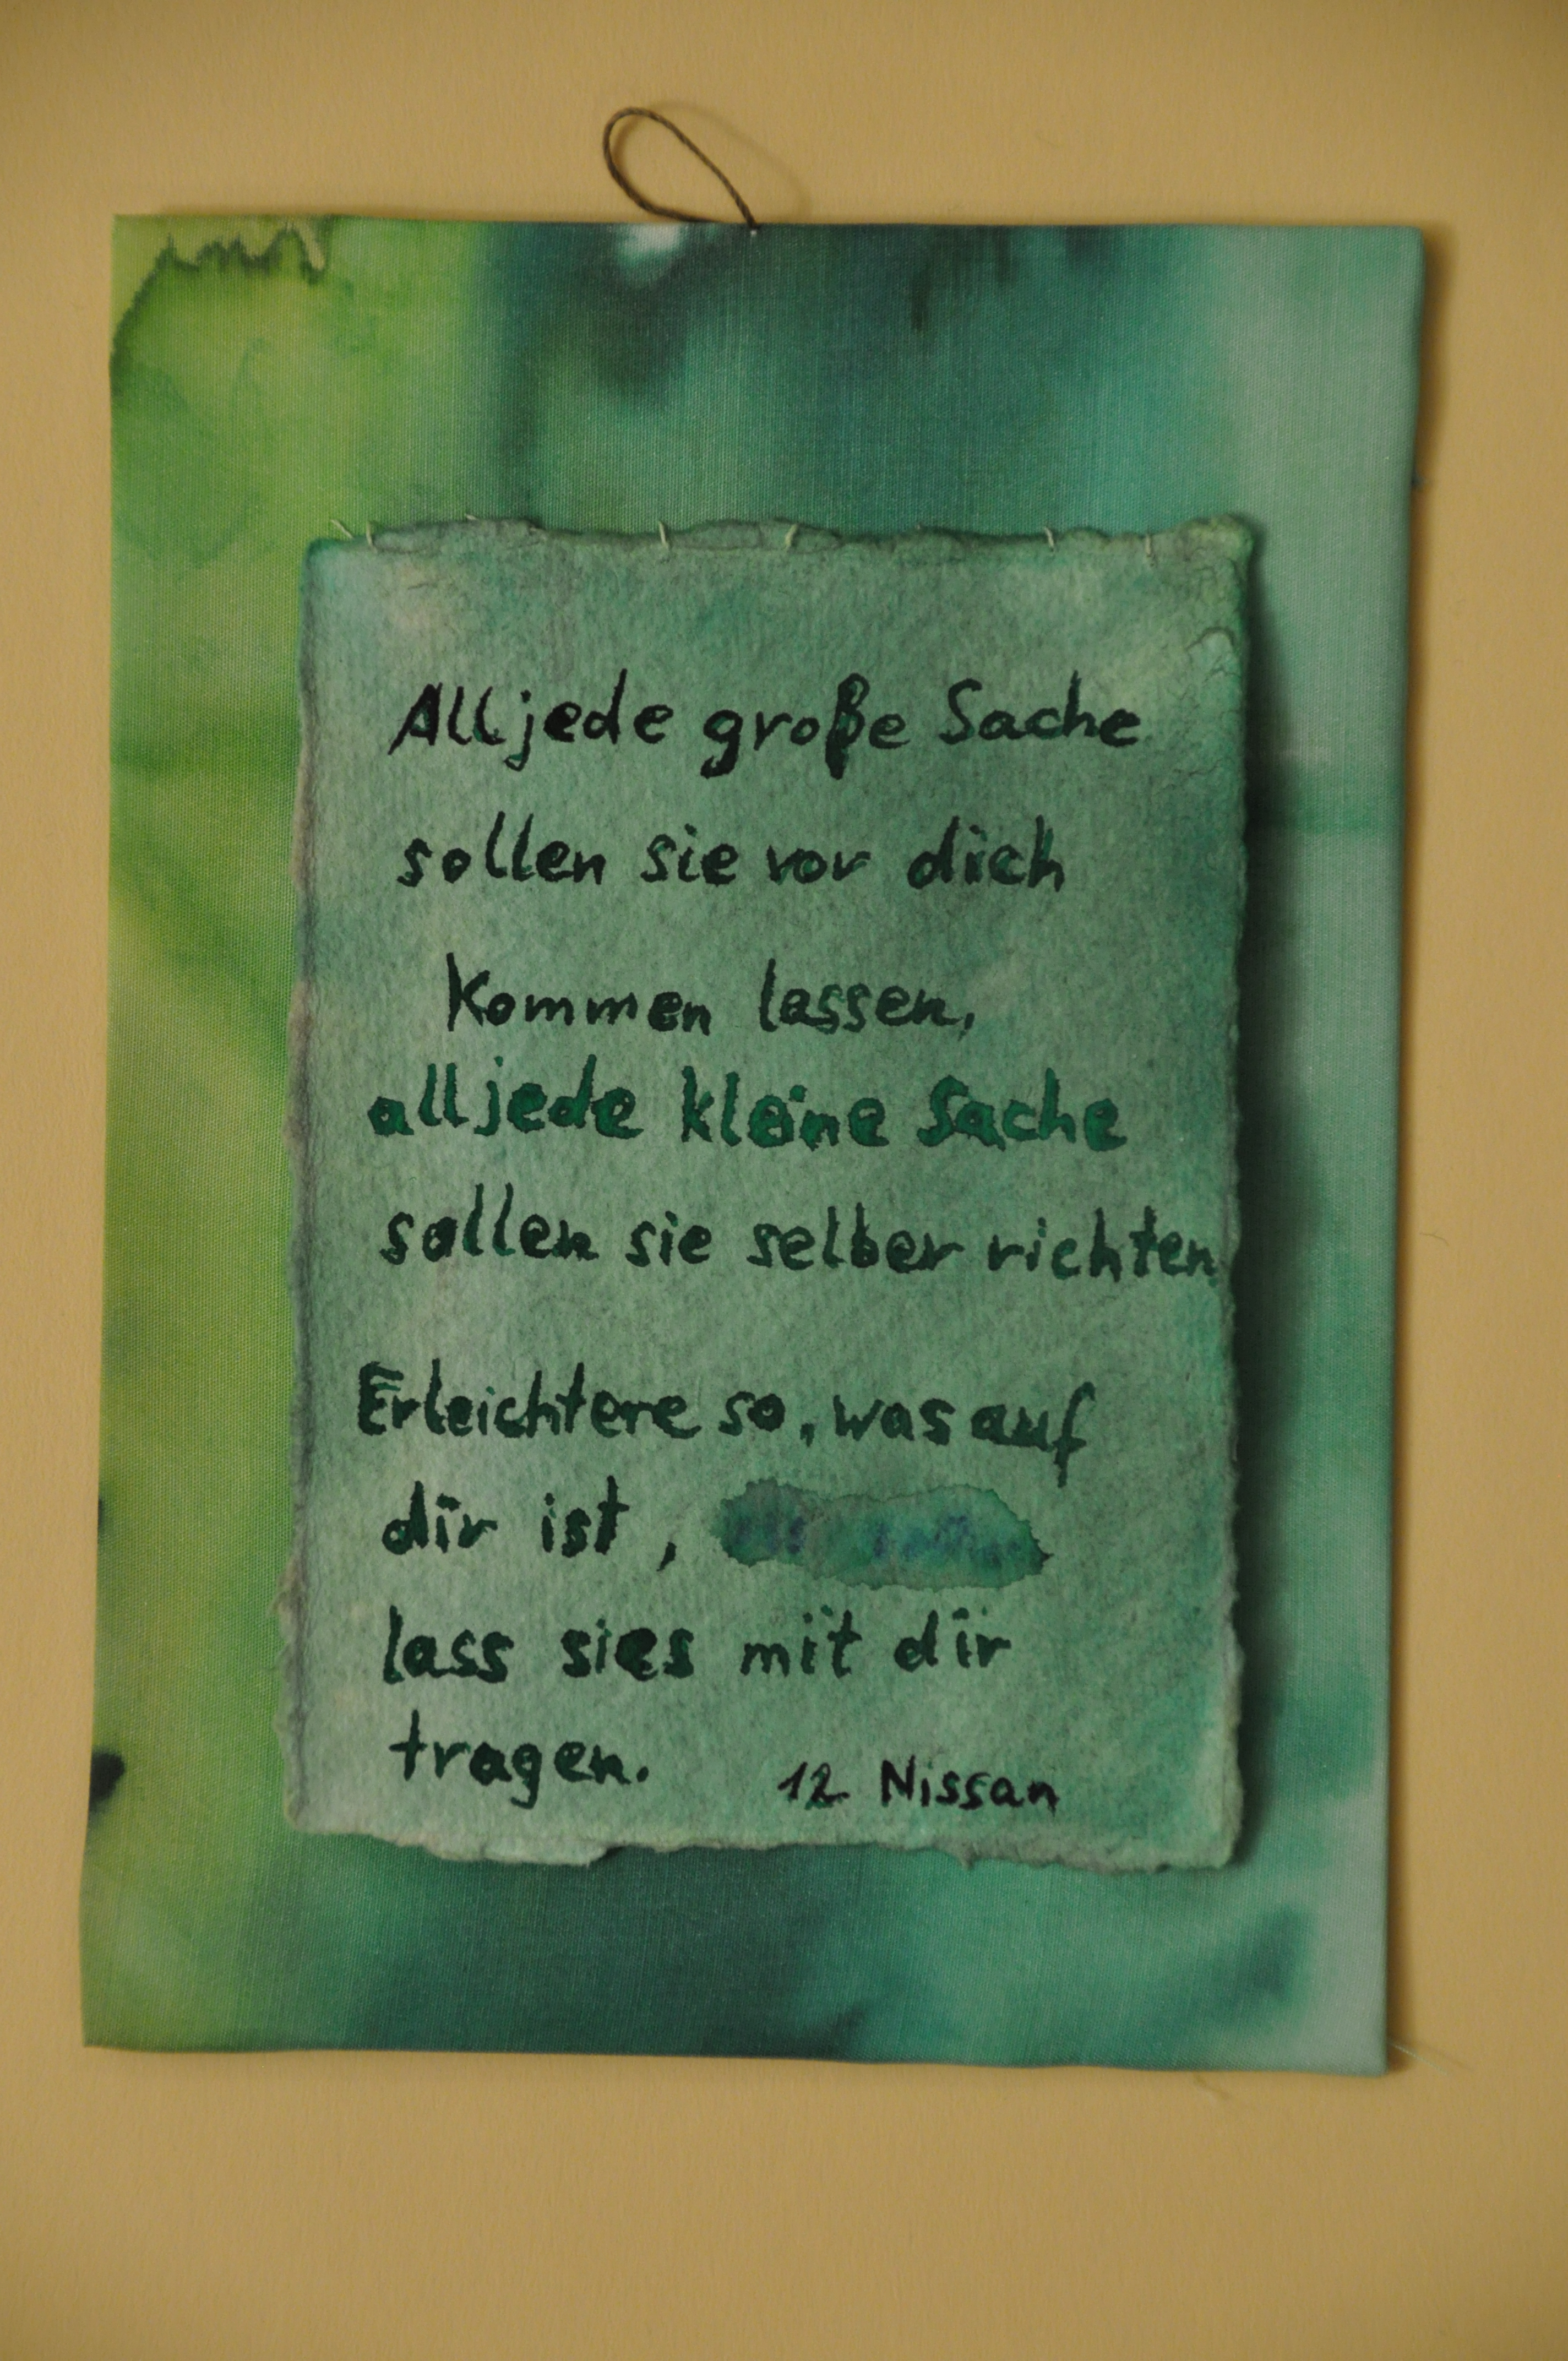 Alljede große Sache
sollen sie vor dich
kommen lassen,
alljede kleine Sache
sollen sie selber richten
Erleichtere so, was auf
dir ist,
lass sies mit dir
tragen.
12 Nissan